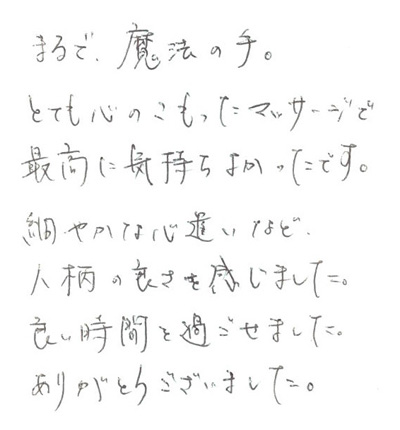 まるで、魔法の手。
とても心のこもったマッサージで
最高に気持ちよかったです。
細やかな心遣いなど、
人柄の良さを感じました。
良い時間を過ごせました。
ありがとうございました。